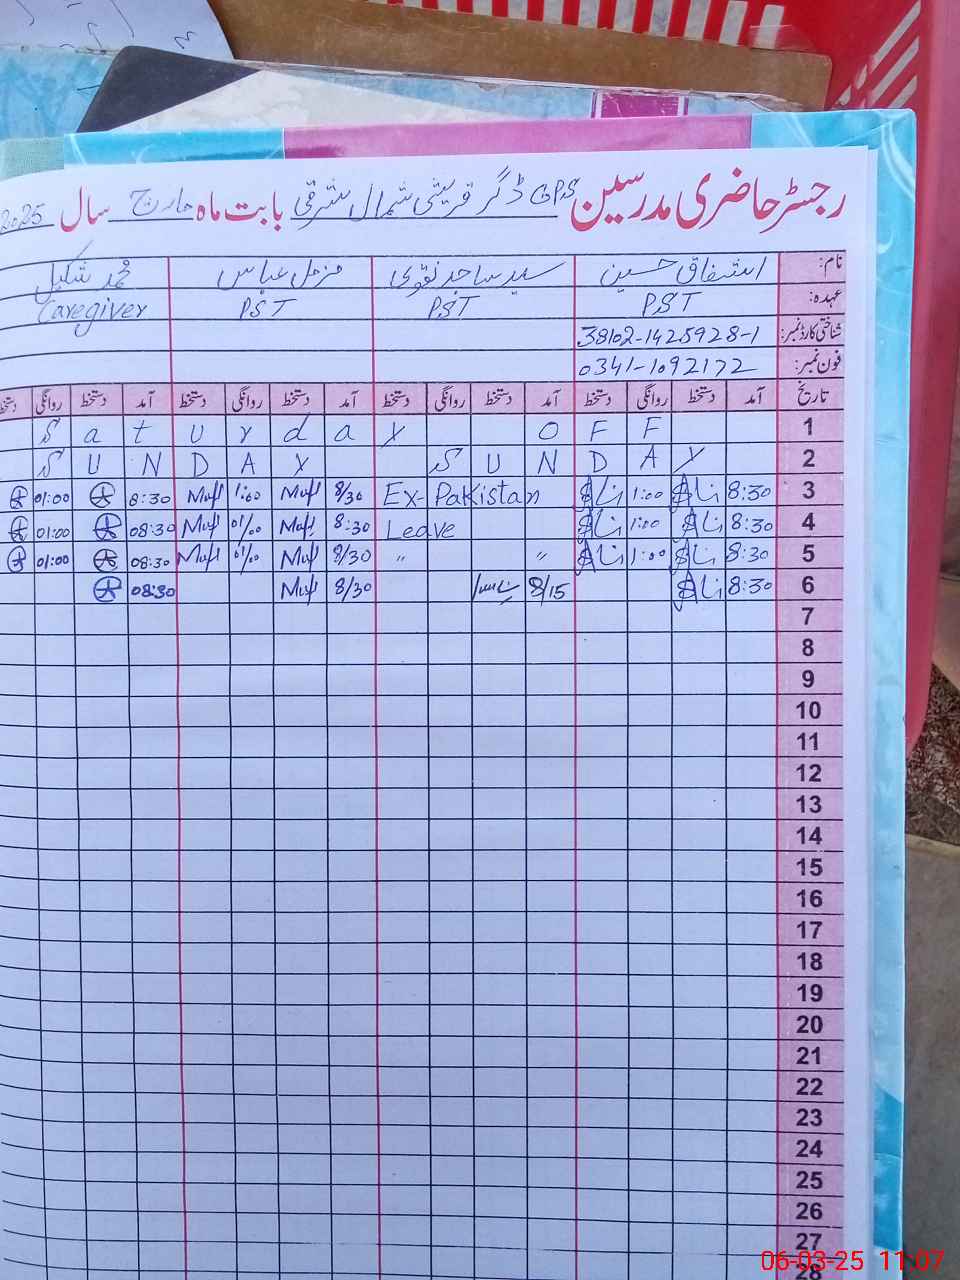 رجسٹر حاضری مدرسین GPS ڈگر قریشی شمال شرقی بابت ماہ مارچ سال 2025
نام: اشفاق حسین سید ساجد نقوی مزمل عباس محمد شکیل
عہدہ: PST PST PST Caregiver
شناختی کارڈ نمبر: 38102-1425928-1
فون نمبر: 0341-1092172
تاریخ آمد دستخط روانگی دستخط آمد دستخط روانگی دستخط آمد دستخط روانگی دستخط آمد دستخط روانگی دستخط
Saturday OFF 1
SUNDAY SUNDAY 2
01:00 8:30 1:00 8/30 Ex-Pakistan 1:00 8:30 3
01:00 08:30 01/00 8:30 Leave 1:00 8:30 4
01:00 08:30 01/00 8/30 " " 1:00 8:30 5
08:30 8/30 8/15 8:30 6
7
8
9
10
11
12
13
14
15
16
17
18
19
20
21
22
23
24
25
26
27
28
06-03-25 11:07